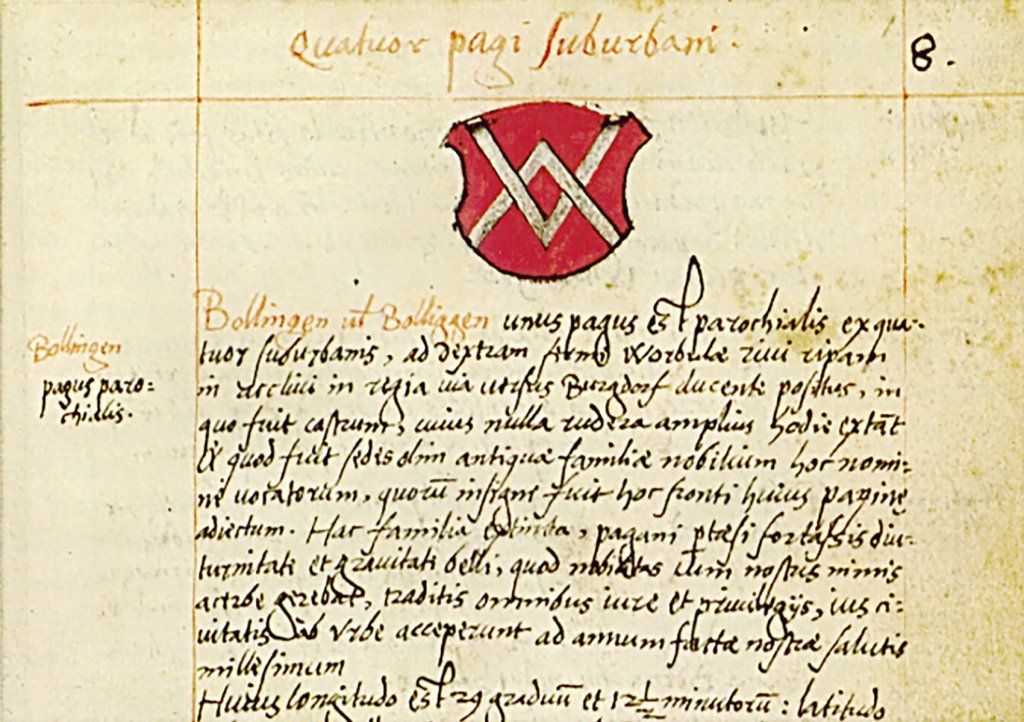 Quatuor pagi suburbani.
8.
Bollingen
pagus paro:
chialis.
Bollingen ul Bolliggen unus pagus est parochialis ex qua-
tuor suburbanis, ad dextram ferme Worbulæ rivi ripam
in acclivi in regia via versus Burgdorf ducente positus, in
quo fuit castrum, cuius nulla rudera amplius hodie extāt
& quod fuit sedes olim antiquæ familiæ nobilium hoc nomi-
ne vocatorum, quorū insigne fuit hoc fronti huius paginę
adiectum. Hac familia extincta, pagani fortassis diu-
turnitate et gravitate belli, quod nobilitas cum nostris nimis
acerbe gerebat, traditis omnibus iure et privilegijs, ius ci-
vitatis ab Urbe acceperunt ad annum factæ nostræ salutis
millesimum
Huius longitudo est 29 graduū et 12½ minutorū: latitudo